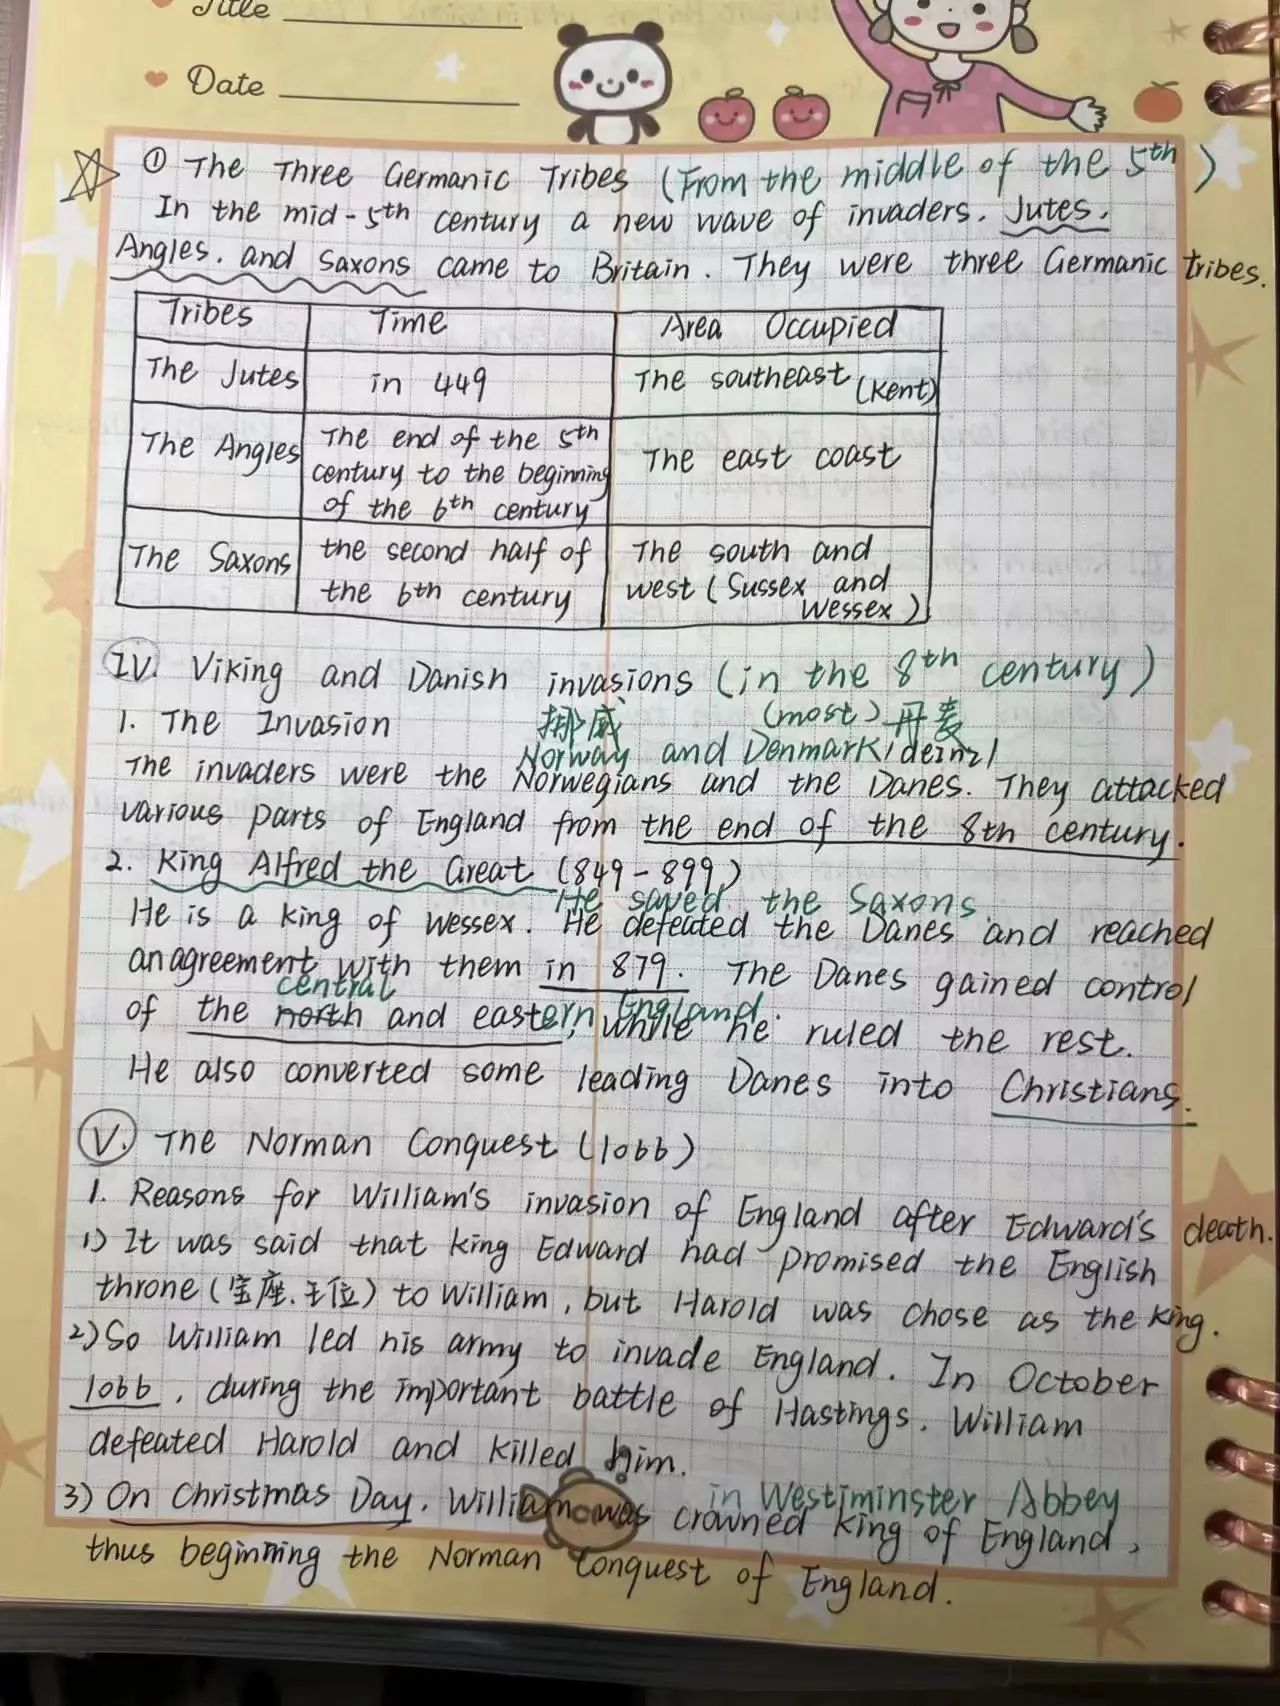 Title
Date
① The Three Germanic Tribes (From the middle of the 5th )
In the mid-5th century a new wave of invaders. Jutes.
Angles. and Saxons came to Britain. They were three Germanic tribes.
Tribes Time Area Occupied
The Jutes in 449 The southeast (Kent)
The Angles The end of the 5th century to the beginning of the 6th century The east coast
The Saxons the second half of the 6th century The south and west (Sussex and Wessex)
IV. Viking and Danish invasions (in the 8th century)
1. The Invasion 挪威 (most) 丹麦
Norway and Denmark/deinzl
The invaders were the Norwegians and the Danes. They attacked
various parts of England from the end of the 8th century.
2. King Alfred the Great (849-899)
He saved the Saxons
He is a king of Wessex. He defeated the Danes and reached
an agreement with them in 879. The Danes gained control
central
of the north and eastern England. , while he ruled the rest.
He also converted some leading Danes into Christians.
V. The Norman Conquest (1066)
1. Reasons for William's invasion of England after Edward's death.
1) It was said that king Edward had promised the English
throne (宝座.王位) to William, but Harold was chose as the king.
2) So William led his army to invade England. In October
1066, during the important battle of Hastings. William
defeated Harold and killed him.
in Westiminster Abbey
3) On Christmas Day. William was crowned king of England,
thus beginning the Norman Conquest of England.